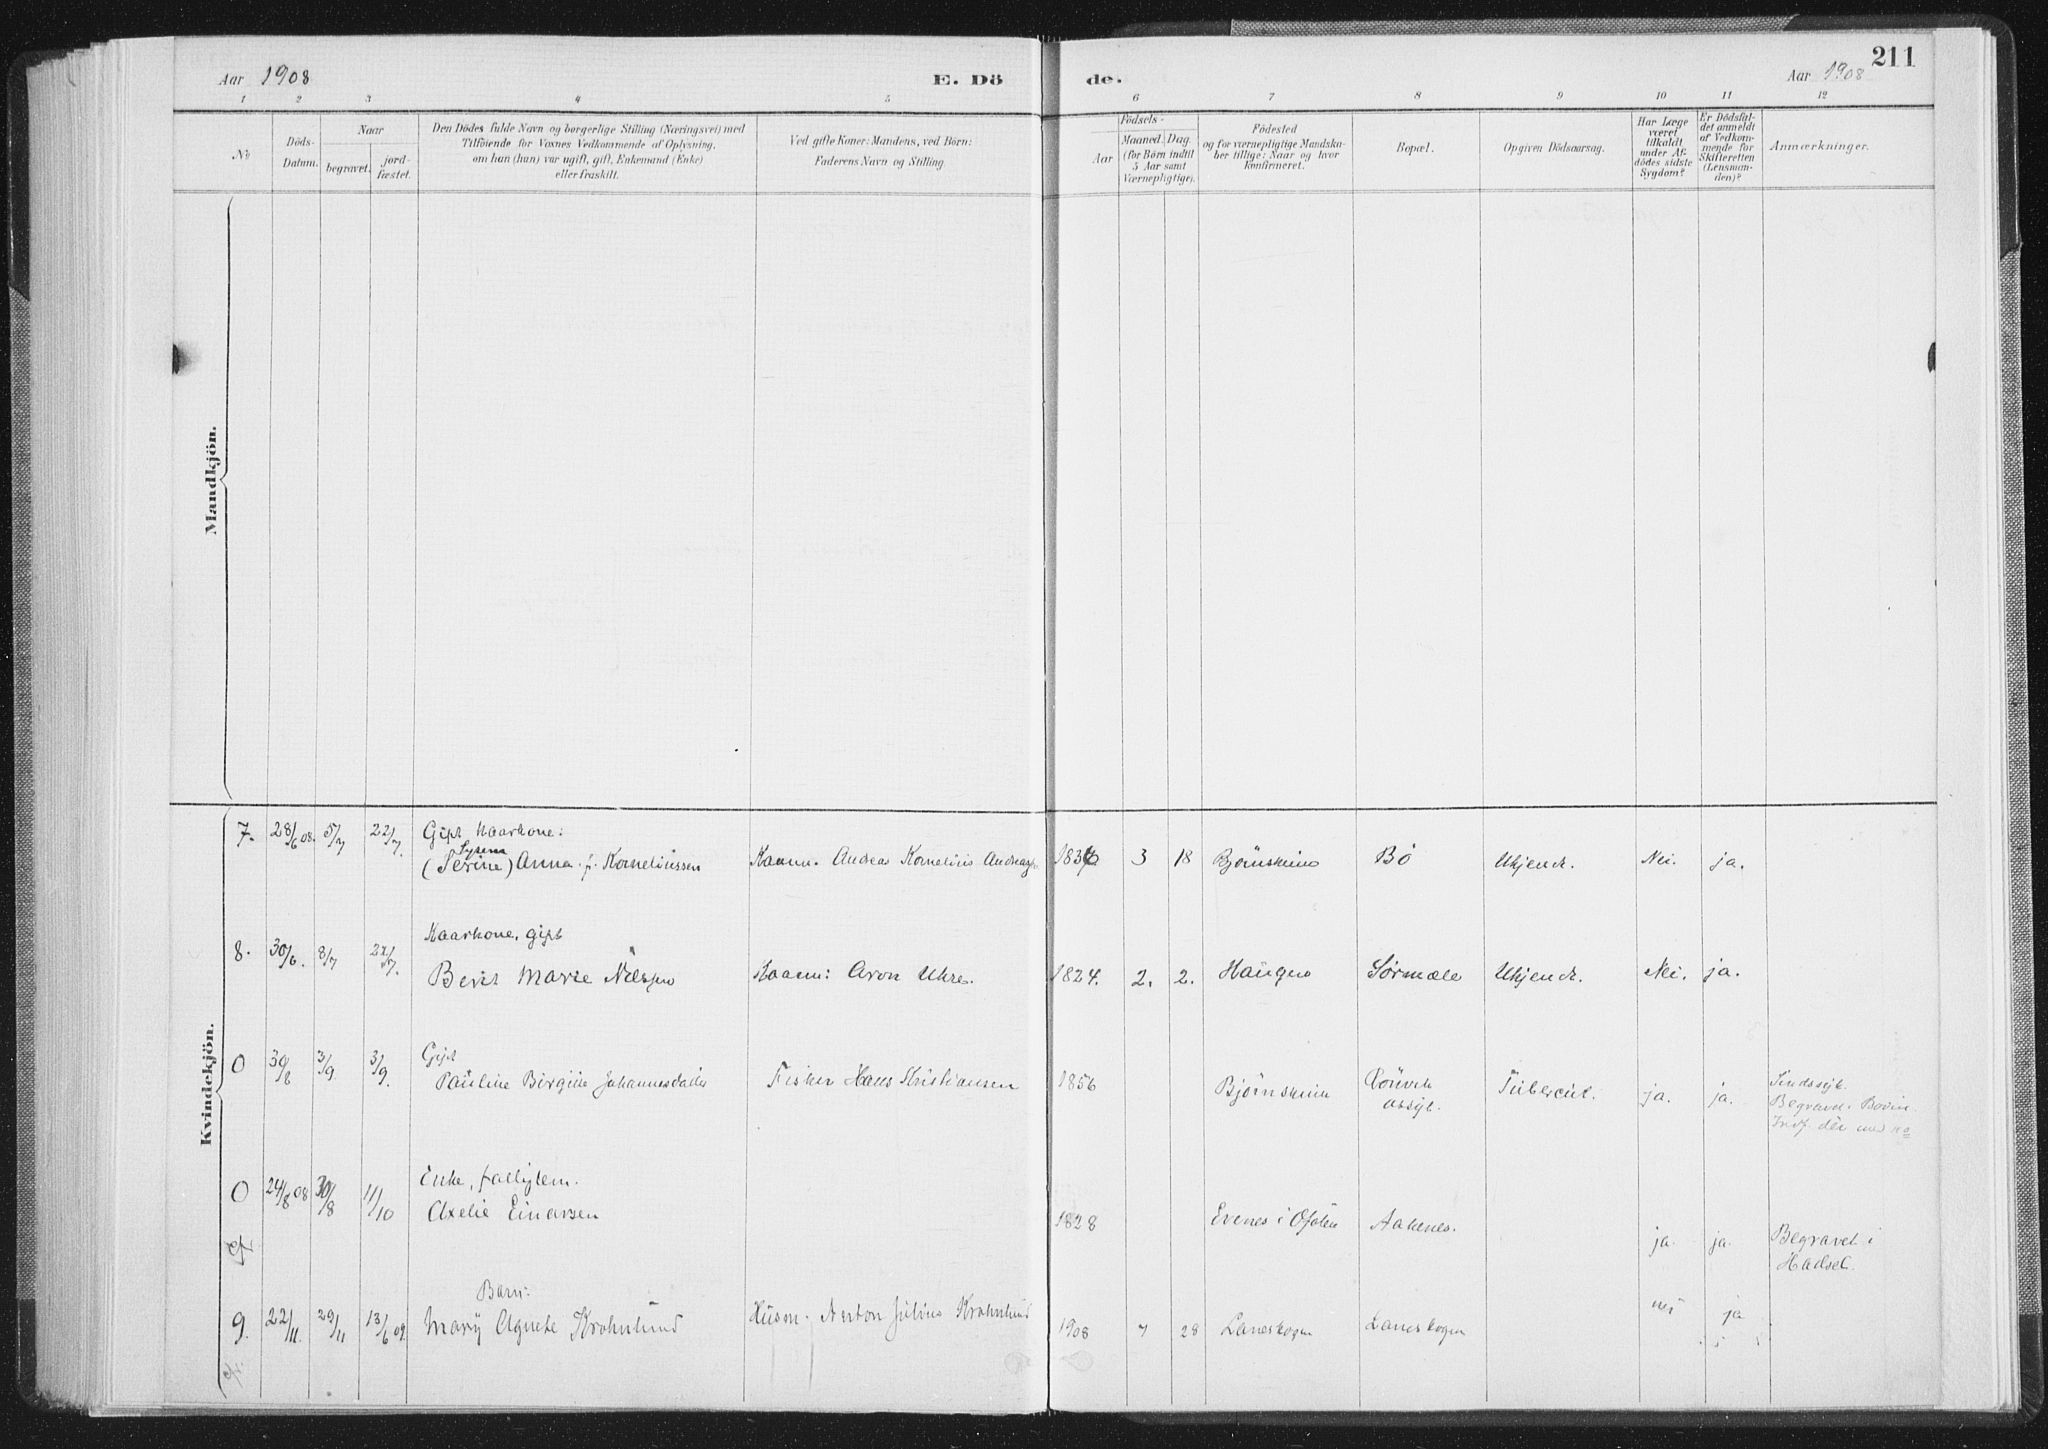 Aar 1908
E. Dö
de.
Aar 1908
211
1 2 3 4 5 6 7 8 9 10 11 12
No
Döds-
Datum.
Naar
begravet.
jord-
fæstet.
Den Dödes fulde Navn og borgerlige Stilling (Næringsvei) med
Tilföiende for Voxnes Vedkommende af Oplysning,
om han (hun) var ugift, gift, Enkemand (Enke)
eller fraskilt.
Ved gifte Koner: Mandens, ved Börn:
Faderens Navn og Stilling.
Födsels-
Aar
Maaned. Dag.
(for Börn indtil
5 Aar samt
Værnepligtige).
Födested
og for værnepligtige Mandska-
ber tillige: Naar og hvor
konfirmeret.
Bopæl.
Opgiven Dödsaarsag.
Har Læge
været
tilkaldt
under Af-
dödes sidste
Sygdom?
Er Dödsfal-
det anmeldt
af Vedkom-
mende for
Skifteretten
(Lensman-
den)?
Anmærkninger.
Mandkjön.
Kvindekjön.
7. 28/6 08. 5/7 22/7. Gift Kaarkone:
(Serine) Anna f. Korneliussen Kaarm. Andreas Kornelius 3 18 Bø Ukjendt. Nei. ja.
Kaarkone, gift
8. 30/6. 8/7
Berit Marie Nilssen Kaarm: Aron 1824. 2. 2. Haugnes Sørmæle Ukjendt. Nei. ja.
Gift
0 30/8 3/9. 3/9. Pauline Birgitte Johannesdatter Fisker Hans Kristiansen 1856 Bjørnskinn Rønvik Tubercul. ja. ja. Sindssyk.
assyl. Begravet i Bodin.
Enke, fattiglem.
0 24/8 08 30/8 11/10 Axelie Einarsen 1828 Evenes i Ofoten Aaknes. ja. ja. Begravet i
Hadsel.
Barn:
9. 22/11. 29/11 13/6 09. Mary Agnete Krohnlund Husm. Anton Julius Krohnlund 1908 7 28 Laneskogen Laneskogen nei ja